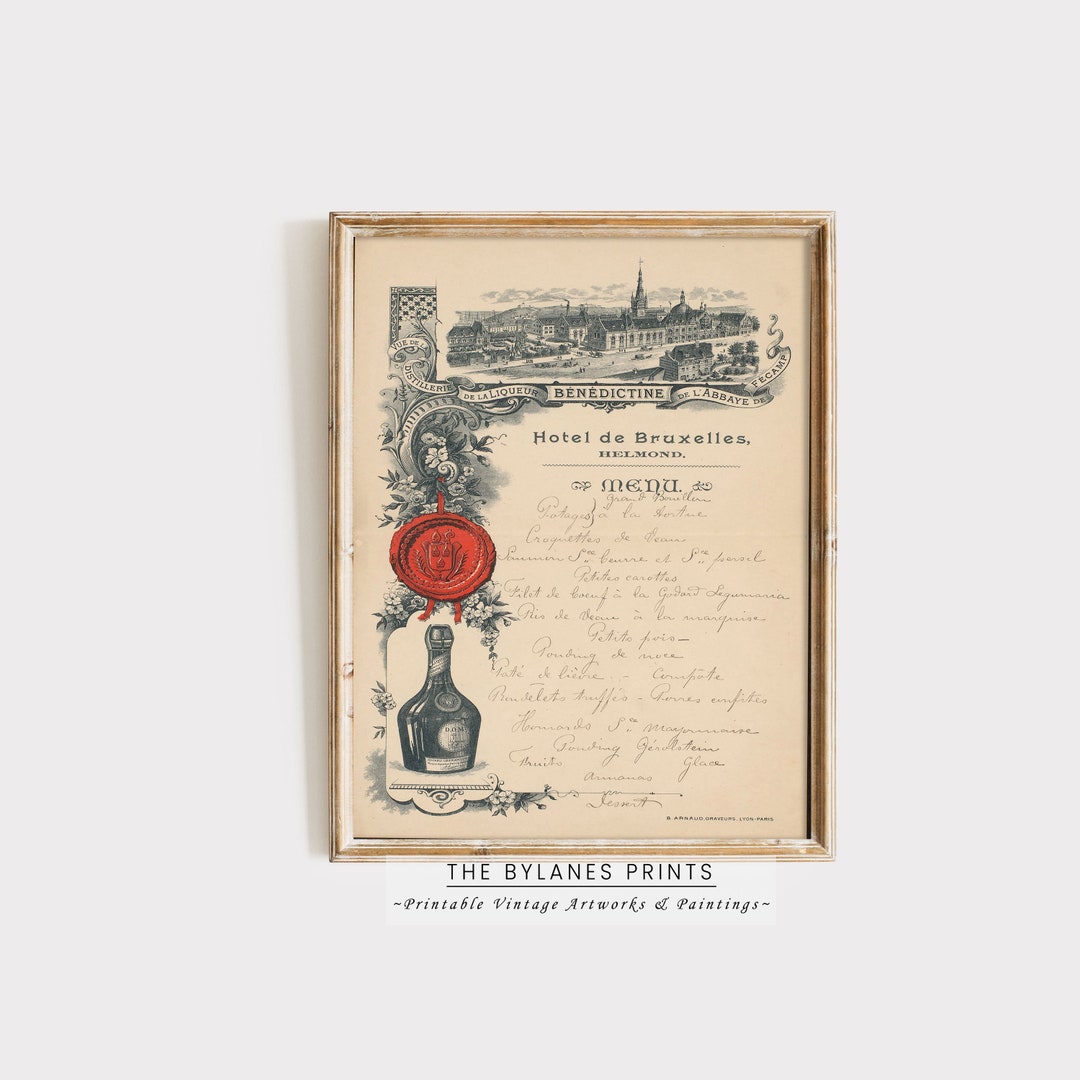 VUE DE LA DISTILLERIE DE LA LIQUEUR BÉNÉDICTINE DE L'ABBAYE DE FÉCAMP
Hotel de Bruxelles,
HELMOND.
MENU.
Grand Bouillon
Potages} à la tortue
Croquettes de Veau
Saumon Sce beurre et Sce persil
Petites carottes
Filet de boeuf à la Godard Legumaria
Ris de Veau à la marquise
Petits pois—
Pouding de noce
Paté de lièvre. - Compôte
truffés - Poires confites
Homards Sce Mayonnaise
Pouding Gérolstein
Fruits Glace
Annanas
Dessert
D.O.M
B. ARNAUD, GRAVEURS, LYON-PARIS
THE BYLANES PRINTS
~Printable Vintage Artworks & Paintings~